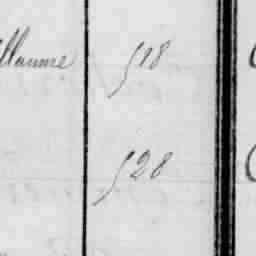 llaume 518
528